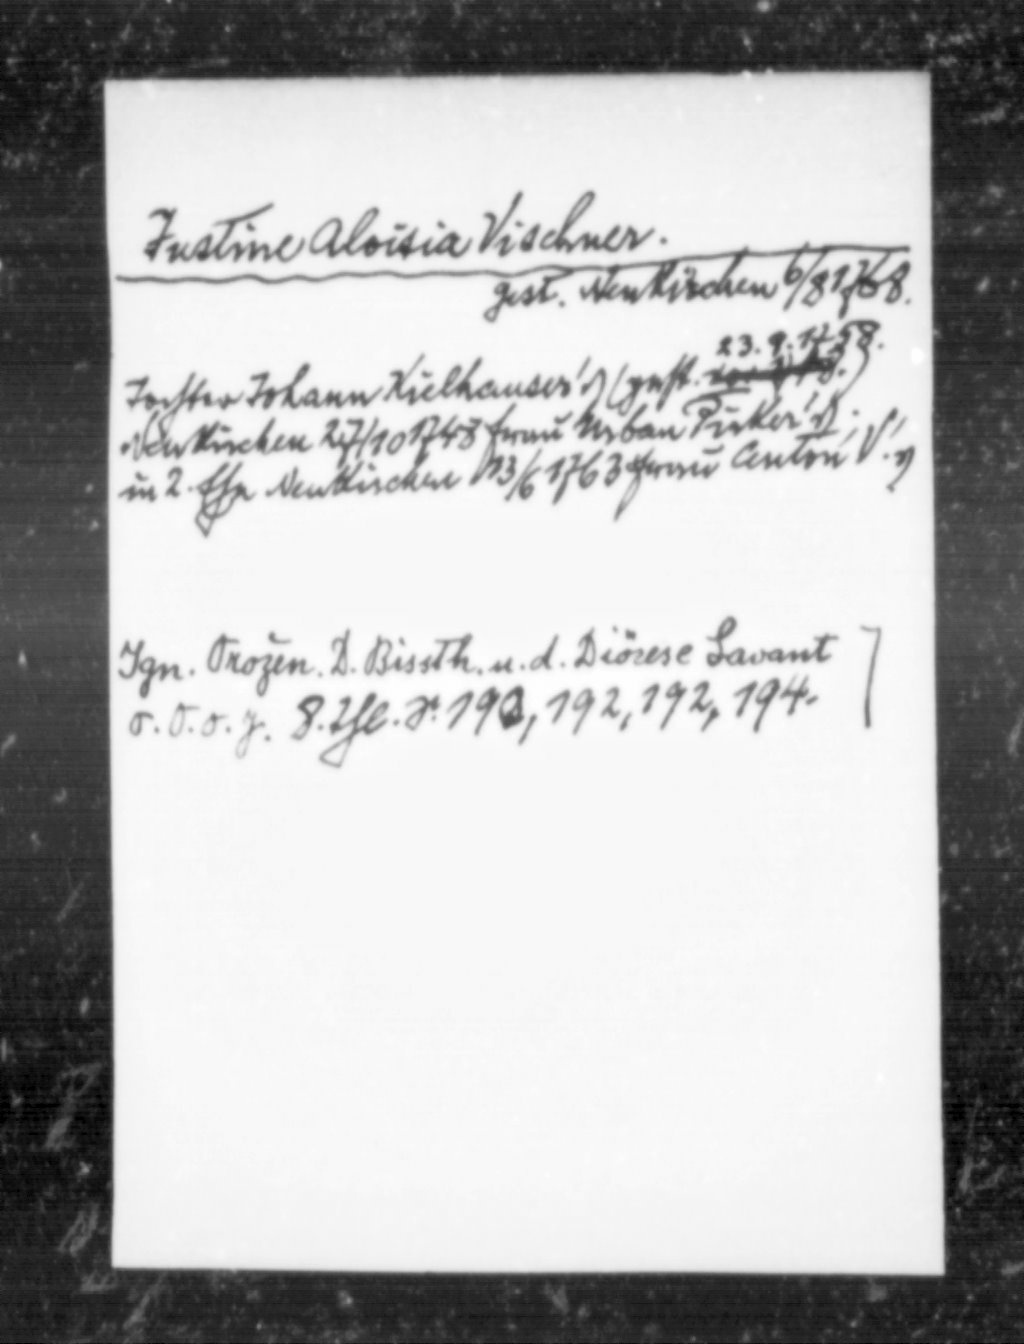 Justine Aloisia Vischner.
gest. Neukirchen 6/8 1768.
23.9.1758.
Tochter Johann Kielhauser's (gest.
Neukirchen 27/10 1748 Frau Urban Pirker's.
in 2. Ehe Neukirchen 13/6 1763 Frau Anton V.'s
Ign. Orožen. D. Bissth. u. d. Diözese Lavant
o.O.o.J. 8. Thl. S. 190, 192, 192, 194.